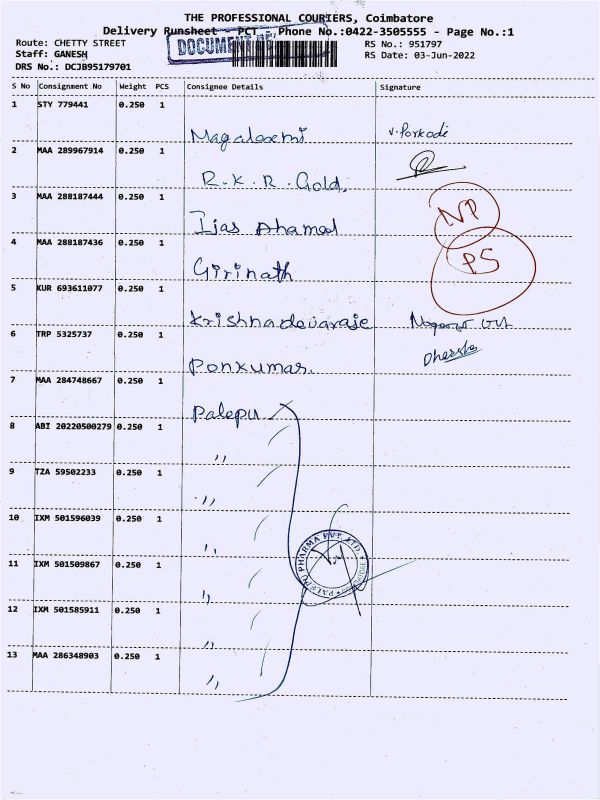 THE PROFESSIONAL COURIERS, Coimbatore
Delivery Runsheet - PCT - Phone No.:0422-3505555 - Page No.:1
Route: CHETTY STREET
RS No.: 951797
Staff: GANESH
RS Date: 03-Jun-2022
DRS No.: DCJB95179701
DOCUMENT
S No Consignment No Weight PCS Consignee Details Signature
1 STY 779441 0.250 1
Magalaxmi V. Porkodi
2 MAA 289967914 0.250 1
R.K.R. Gold.
3 MAA 288187444 0.250 1
Ijas Ahamed NP
4 MAA 288187436 0.250 1
Girinath PS
5 KUR 693611077 0.250 1
Krishnadevaraje
6 TRP 5325737 0.250 1
Ponkumar.
7 MAA 284748667 0.250 1
Palepu
8 ABI 20220500279 0.250 1
,,
9 TZA 59502233 0.250 1
,,
10 IXM 501596039 0.250 1
,,
11 IXM 501509867 0.250 1
,,
12 IXM 501585911 0.250 1
,,
13 MAA 286348903 0.250 1
,,
PALEPU PHARMA PVT. LTD.